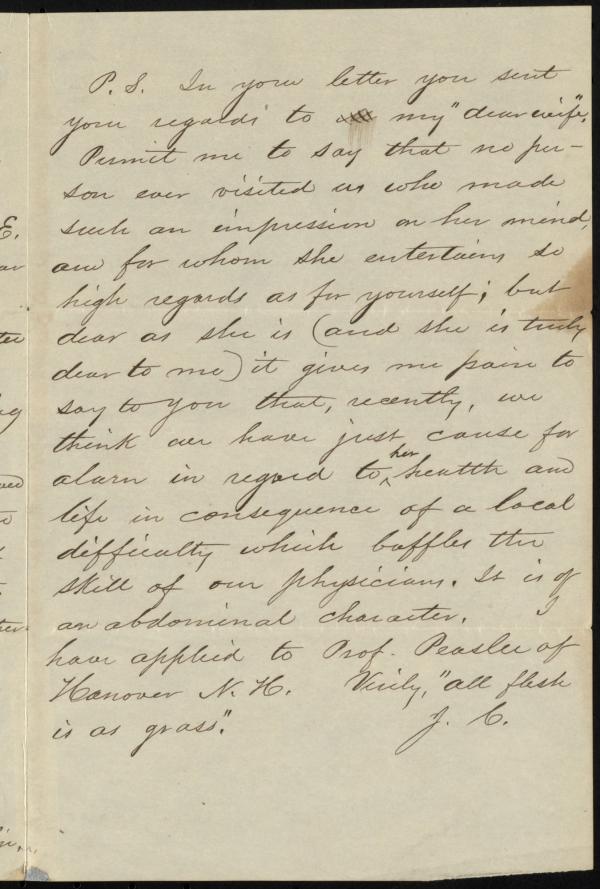 P.S. In your letter you sent
your regards to my "dear wife".
Permit me to say that no per-
son ever visited us who made
such an impression on her mind,
and for whom she entertains so
high regards as for yourself; but
dear as she is (and she is truly
dear to me) it gives me pain to
say to you that, recently, we
think we have just cause for
alarm in regard to her health and
life in consequence of a local
difficulty which baffles the
skill of our physicians. It is of
an abdominal character. I
have applied to Prof. Peaslee of
Hanover N.H. Verily, "all flesh
is as grass".
J. C.